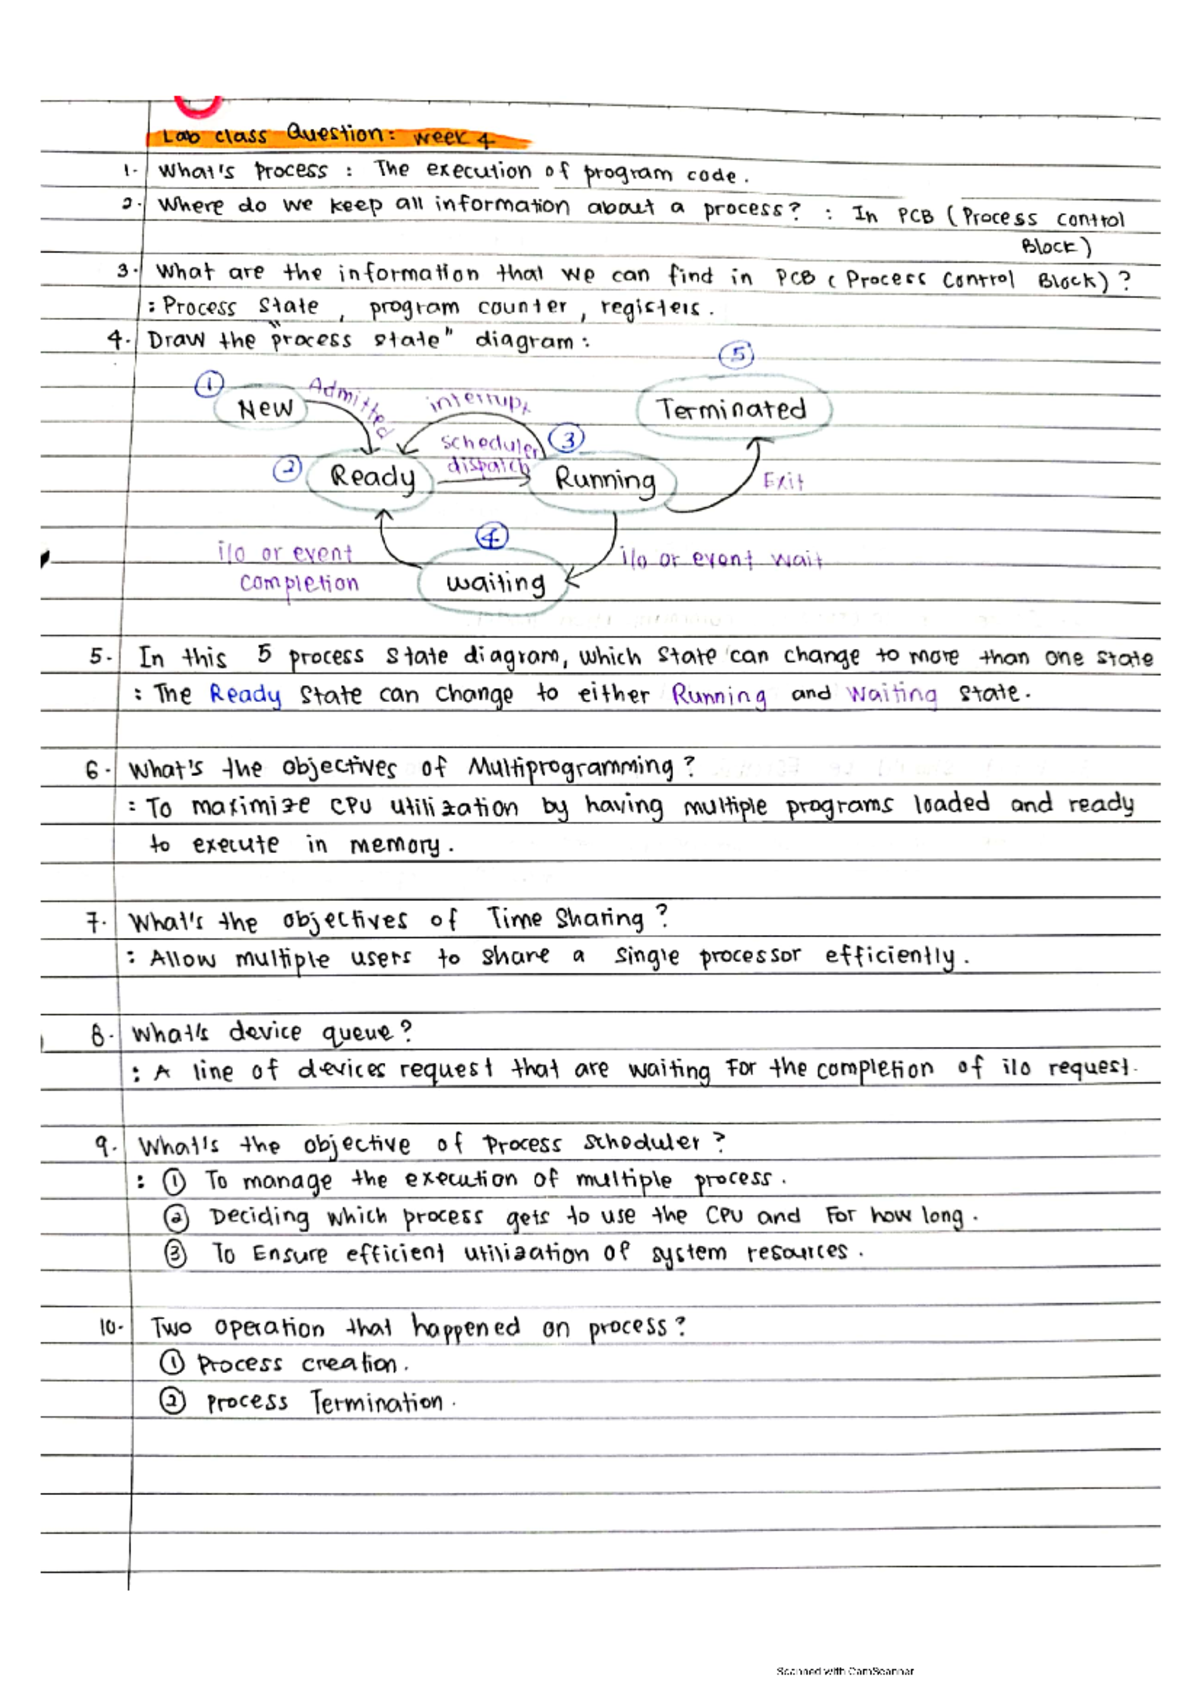 Lab class Question: week 4
1. What's Process : The execution of program code.
2. Where do we keep all information about a process? : In PCB (Process control
Block)
3. What are the information that we can find in PCB (Process Control Block)?
: Process State , program counter , registers.
4. Draw the "process state" diagram :
5
1
New
Admitted
interrupt
Terminated
scheduler
dispatch
3
2
Ready
Running
Exit
4
i/o or event
completion
waiting
i/o or event wait
5. In this 5 process state diagram, which state can change to more than one state
: The Ready state can change to either Running and Waiting state.
6. What's the objectives of Multiprogramming ?
: To maximize CPU utilization by having multiple programs loaded and ready
to execute in memory.
7. What's the objectives of Time Sharing ?
: Allow multiple users to share a single processor efficiently.
8. What's device queue?
: A line of devices request that are waiting For the completion of i/o request.
9. What's the objective of Process scheduler ?
: 1 To manage the execution of multiple process.
2 Deciding which process gets to use the CPU and For how long.
3 To Ensure efficient utilization of system resources.
10. Two operation that happened on process?
1 Process creation.
2 Process Termination.
Scanned with CamScanner